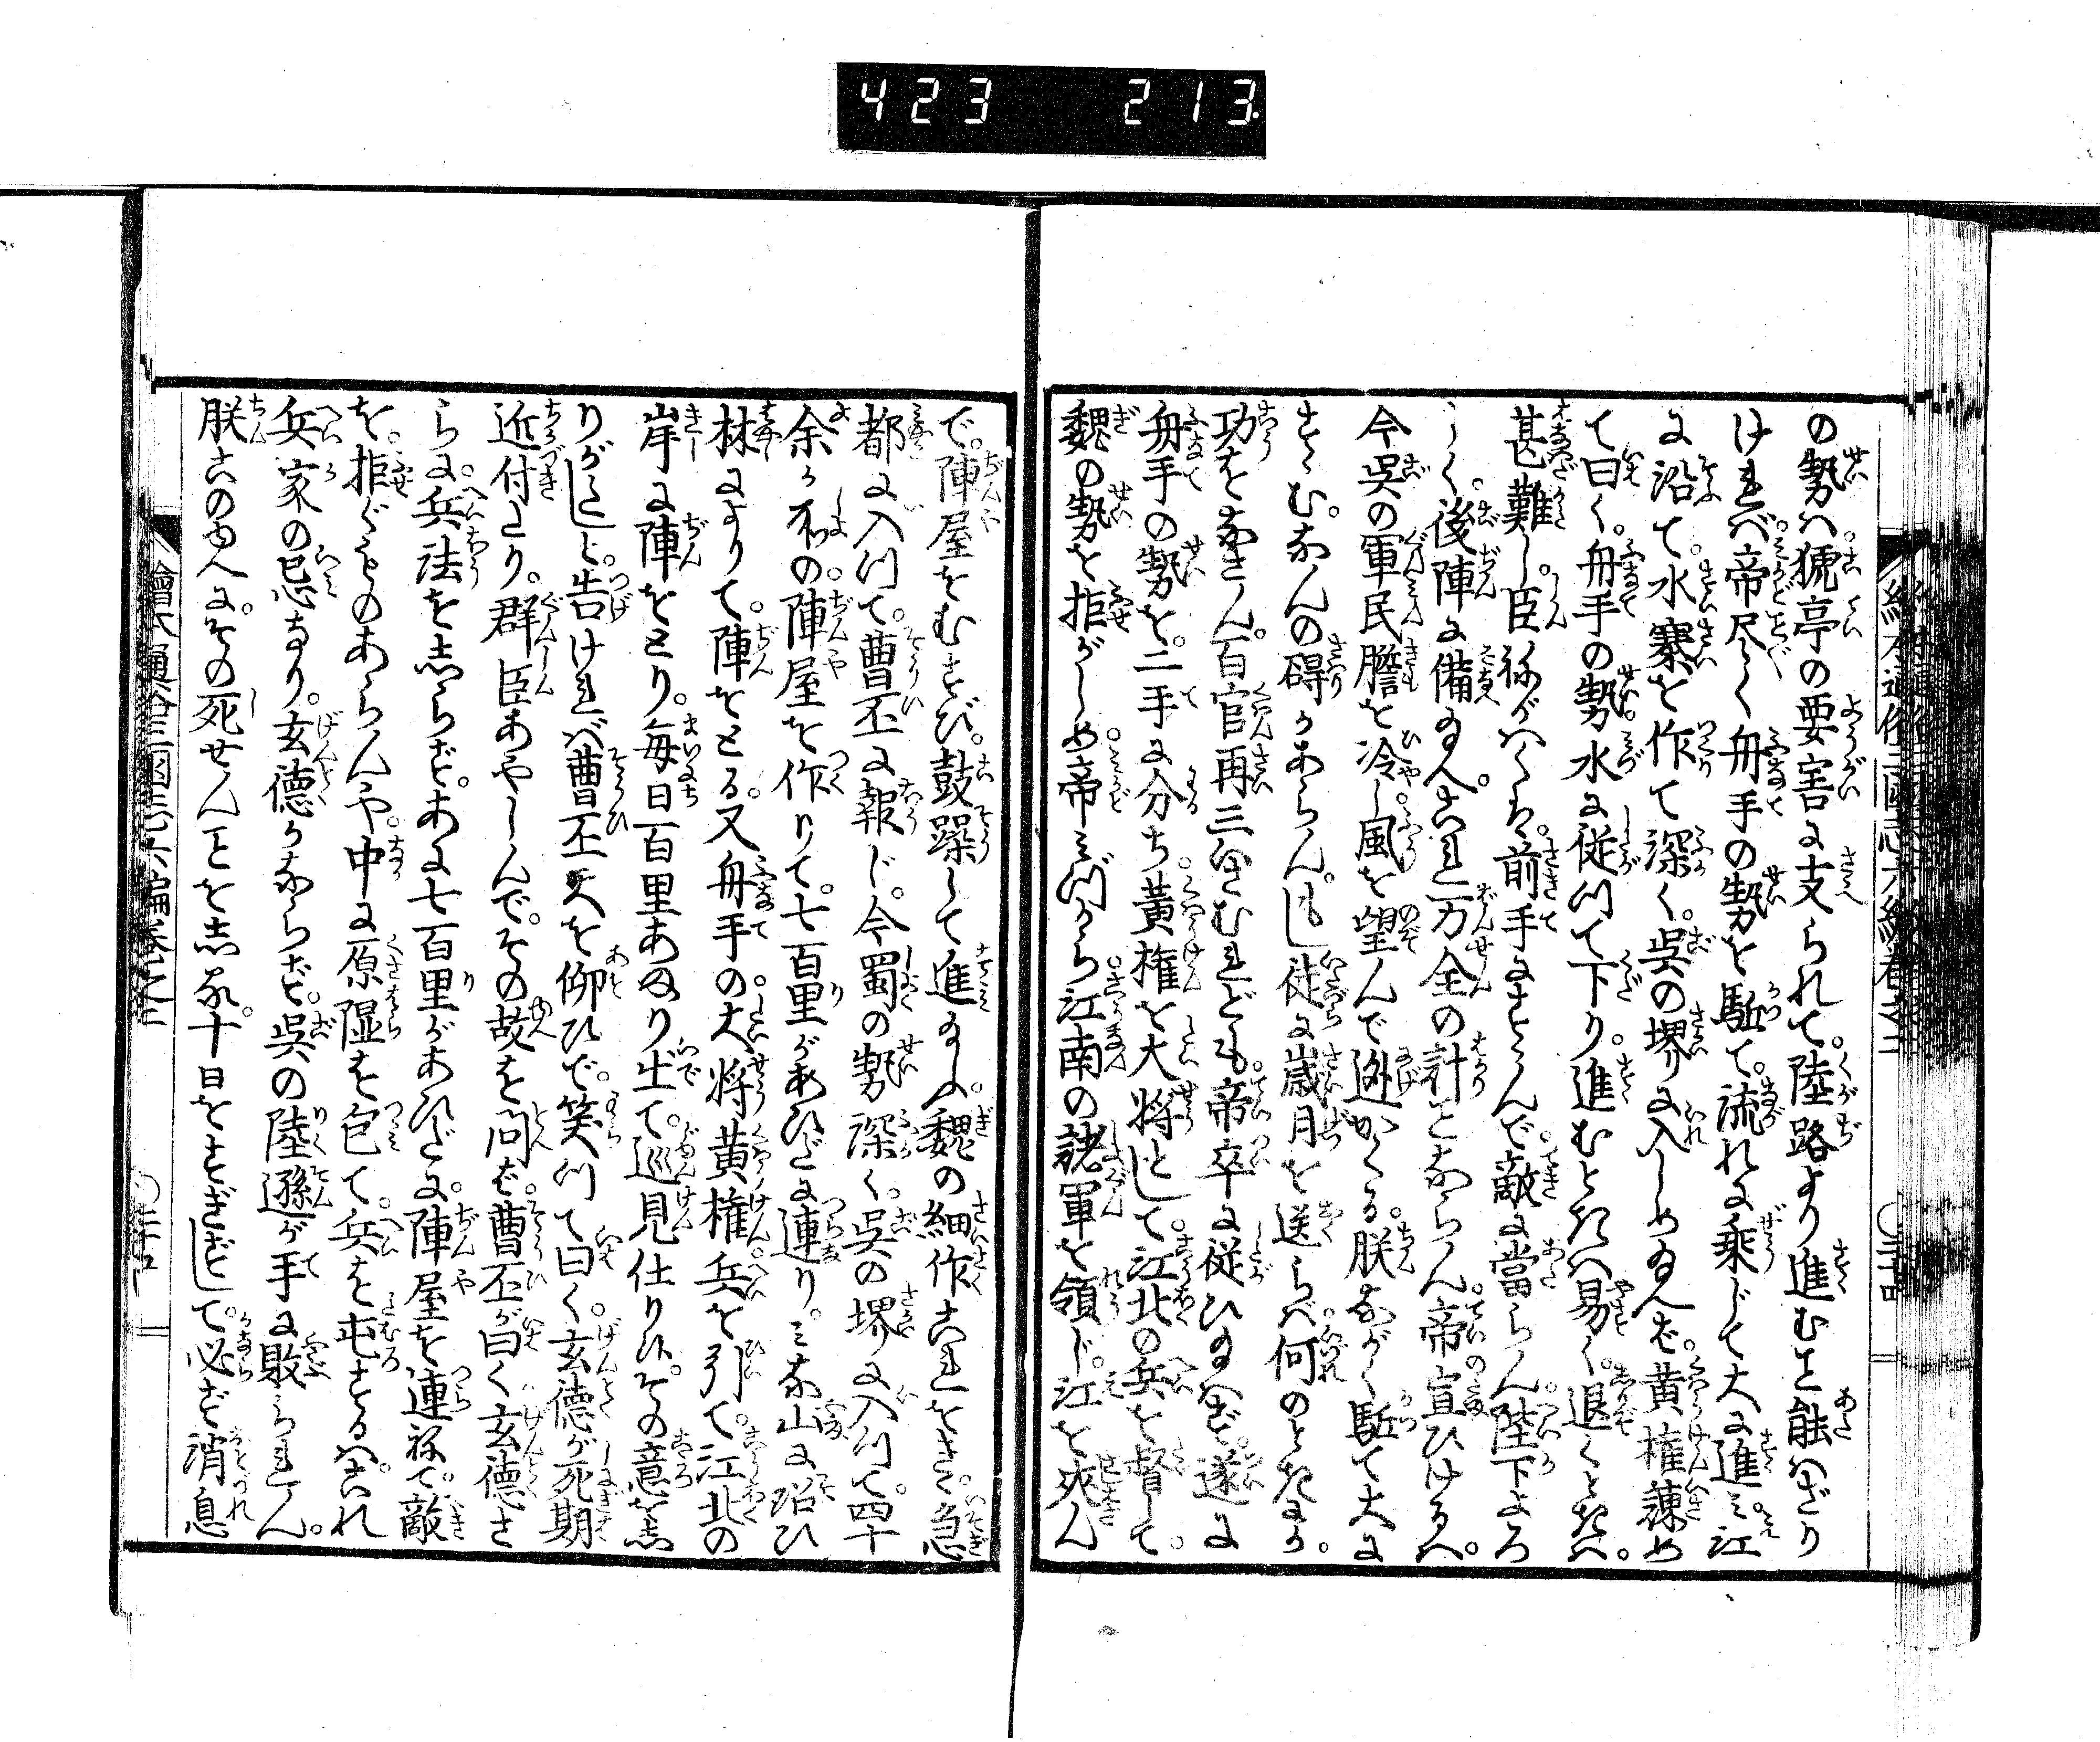 423 213
の勢ハ。猇亭の要害に支られて。陸路より進むこと能ハざり
けれバ。帝尽く舟手の勢を駈て。流れに乗じて大に進ミ。江
に沿て。水寨を作て深く。呉の堺に入しめ給へバ。黄権諫め
て曰く。舟手の勢。水に従つて下り。進むときハ易く。退くときハ。
甚難し。臣ねがハくハ。前手にすゝんで。敵に當らん。陛下よろ
しく。後陣に備給へ。これ万全の計とならん。帝宣ひけるハ。
今呉の軍民。膽を冷し。風を望んで迯かくる。朕ながく駈て大に
すゝむ。なんの碍かあらん。もし徒に歳月を送らバ。何のときにか。
功をなさん。百官再三いさむれども。帝卒に従ひ給ハず。遂に
舟手の勢を。二手に分ち。黄権を大将として。江北の兵を督して。
魏の勢を拒がしめ。帝ミづから。江南の諸軍を領じ。江を夾ん
で。陣屋をむすび。鼓躁して進給ふ。魏の細作これをきゝ。急
都に入つて。曹丕に報じ。今蜀の勢深く。呉の堺に入つて。四十
余ヶ所の。陣屋を作りて。七百里があひだに連り。ミな山に沿ひ
林によりて。陣をとる。又舟手の。大将黄権。兵を引て。江北の
岸に陣をとり。毎日百里あまり出て。巡見仕り候。その意を志
りがたしと。告けれバ曹丕天を仰ひで。笑つて曰く。玄徳が死期
近付たり。群臣あやしんで。その故を問ば。曹丕が曰く玄徳さ
らに。兵法を志らず。あに七百里があひだに。陣屋を連ねて。敵
を。拒ぐものあらんや。中に原隰を包て。兵を屯するハ。これ
兵家の忌なり。玄徳かならず。呉の陸遜が手に敗られん。
朕このゆへに。その死せんことを志る。十日をすぎずして。必ず消息
繪本通俗三國志六編巻之二